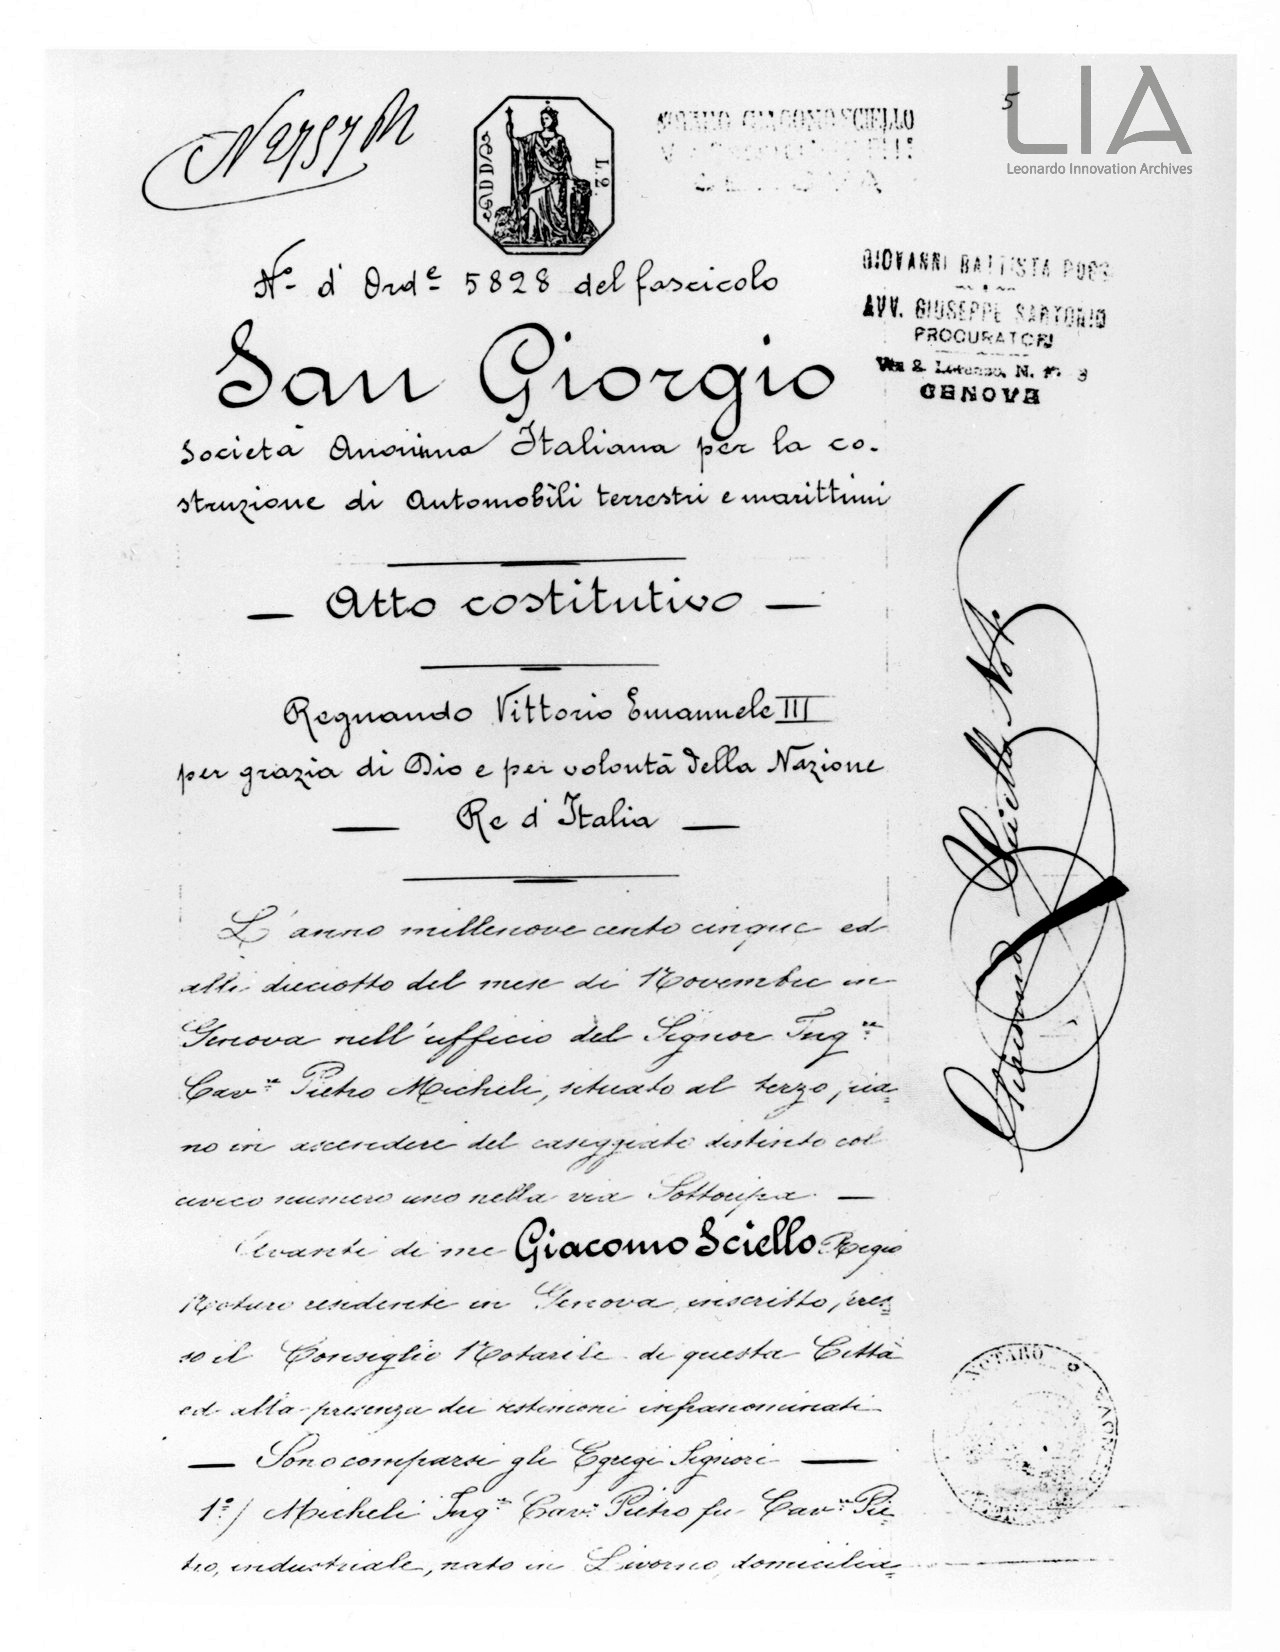 5
LIA
Leonardo Innovation Archives
L.2.
NOTARO GIACOMO SCIELLO
GENOVA
N.º d'Ord.e 5828 del fascicolo
GIOVANNI BATTISTA
AVV. GIUSEPPE SARTORIO
PROCURATORI
Via S. Lorenzo, N.
GENOVA
San Giorgio
Società Anonima Italiana per la co-
struzione di Automobili terrestri e marittimi
— Atto costitutivo —
Regnando Vittorio Emanuele III
per grazia di Dio e per volontà della Nazione
— Re d'Italia —
L'anno millenove cento cinque ed
alli dieciotto del mese di Novembre in
Genova nell'ufficio del Signor Ing.re
Cav.re Pietro Micheli, situato al terzo pia-
no in ascendere del caseggiato distinto col
civico numero uno nella via Sottoripa. —
Avanti di me Giacomo Sciello Regio
Notaro residente in Genova, inscritto pres-
so il Consiglio Notarile di questa Città
ed alla presenza dei testimoni infranominati
— Sono comparsi gli Egregi Signori —
1º/ Micheli Ing.re Cav.re Pietro fu Cav.re Pie-
tro, industriale, nato in Livorno, domicilia-
Giacomo Sciello Not.
NOTARO